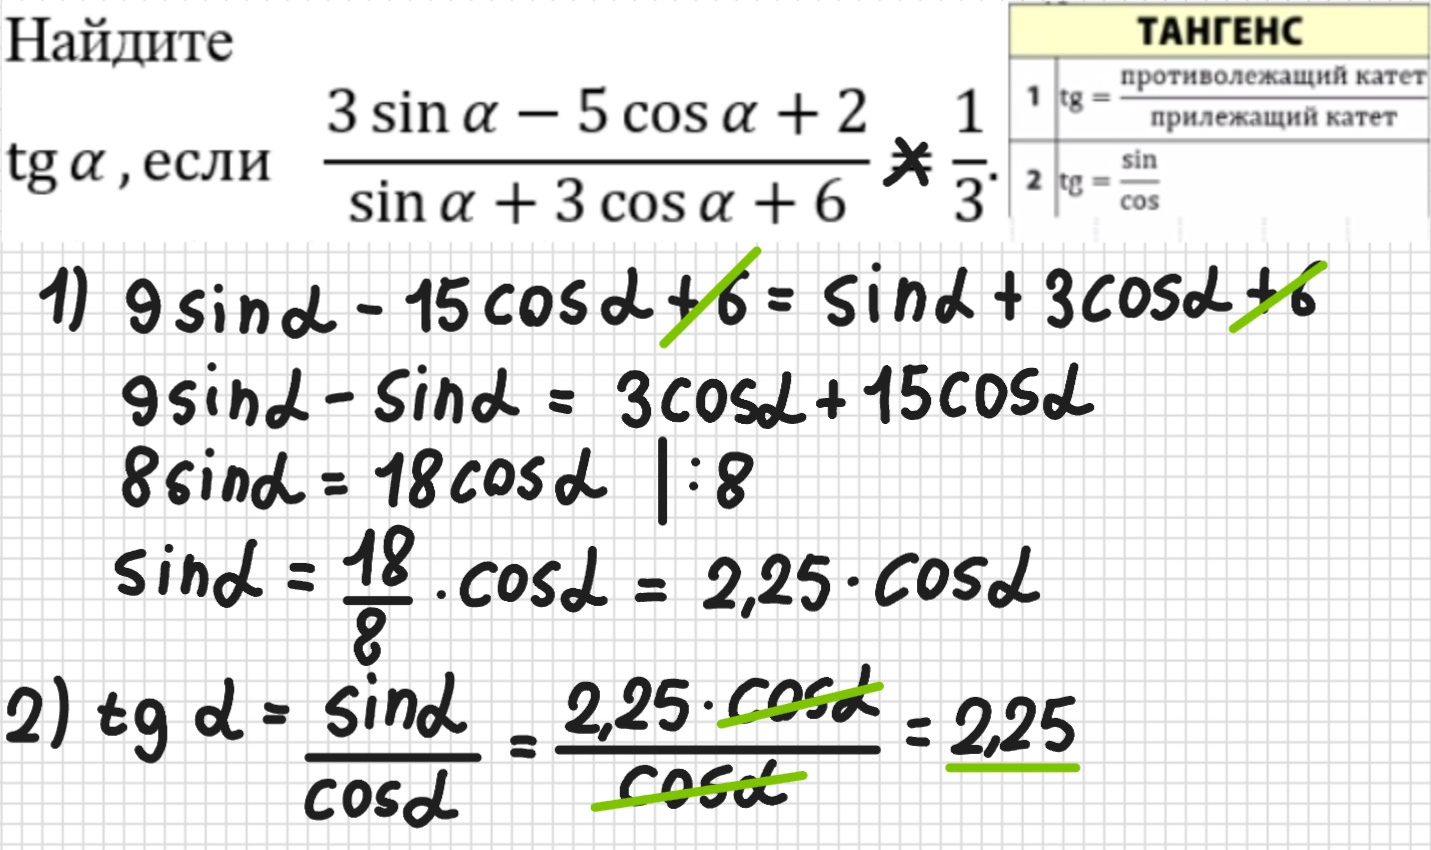 Найдите
tg α , если (3 sin α − 5 cos α + 2)/(sin α + 3 cos α + 6) = 1/3.
ТАНГЕНС
1 tg = противолежащий катет/прилежащий катет
2 tg = sin/cos
1) 9sinα - 15cosα + 6 = sinα + 3cosα + 6
9sinα - sinα = 3cosα + 15cosα
8sinα = 18cosα | : 8
sinα = 18/8 · cosα = 2,25 · cosα
2) tg α = sinα/cosα = 2,25 · cosα/cosα = 2,25